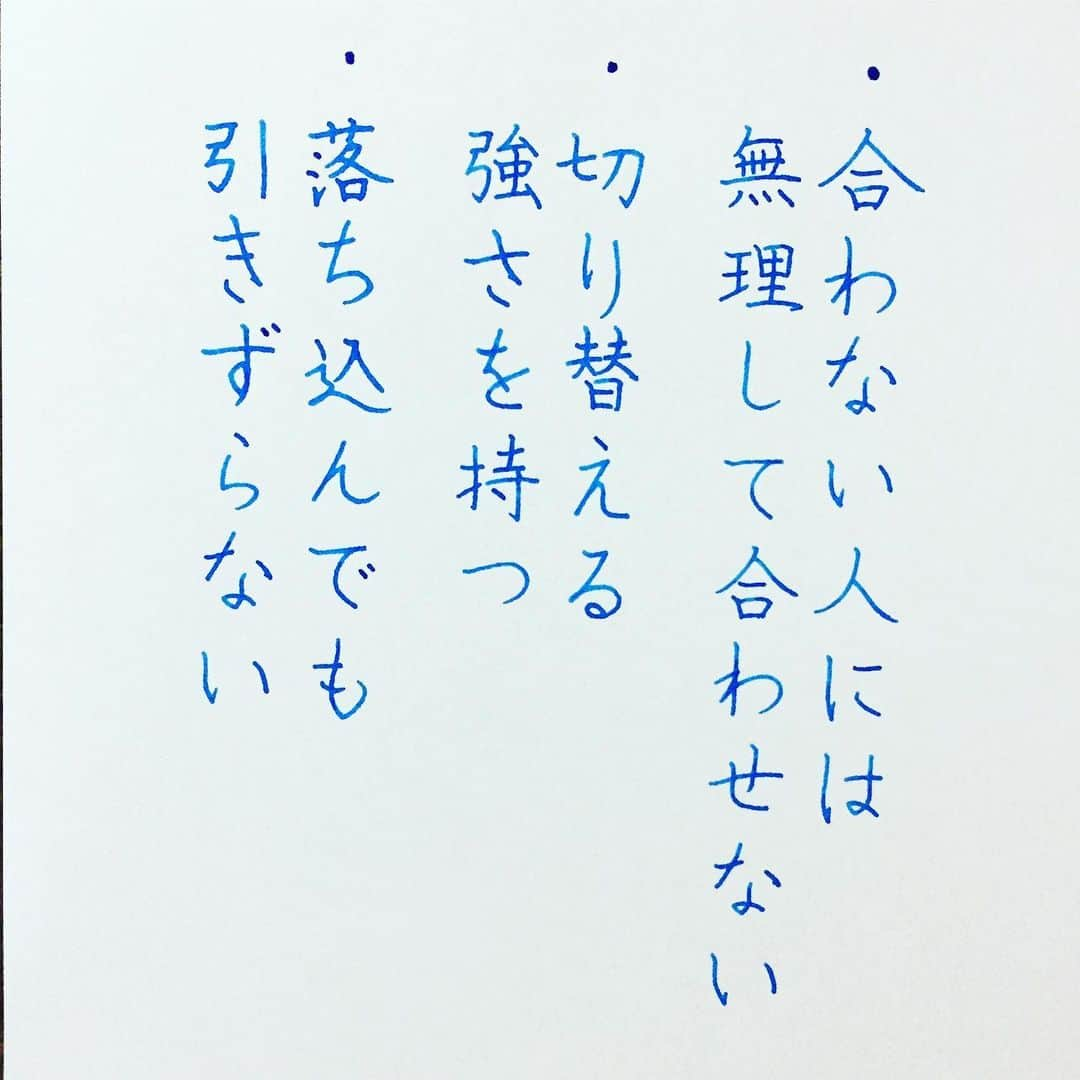 ・合わない人には
無理して合わせない
・切り替える
強さを持つ
・落ち込んでも
引きずらない